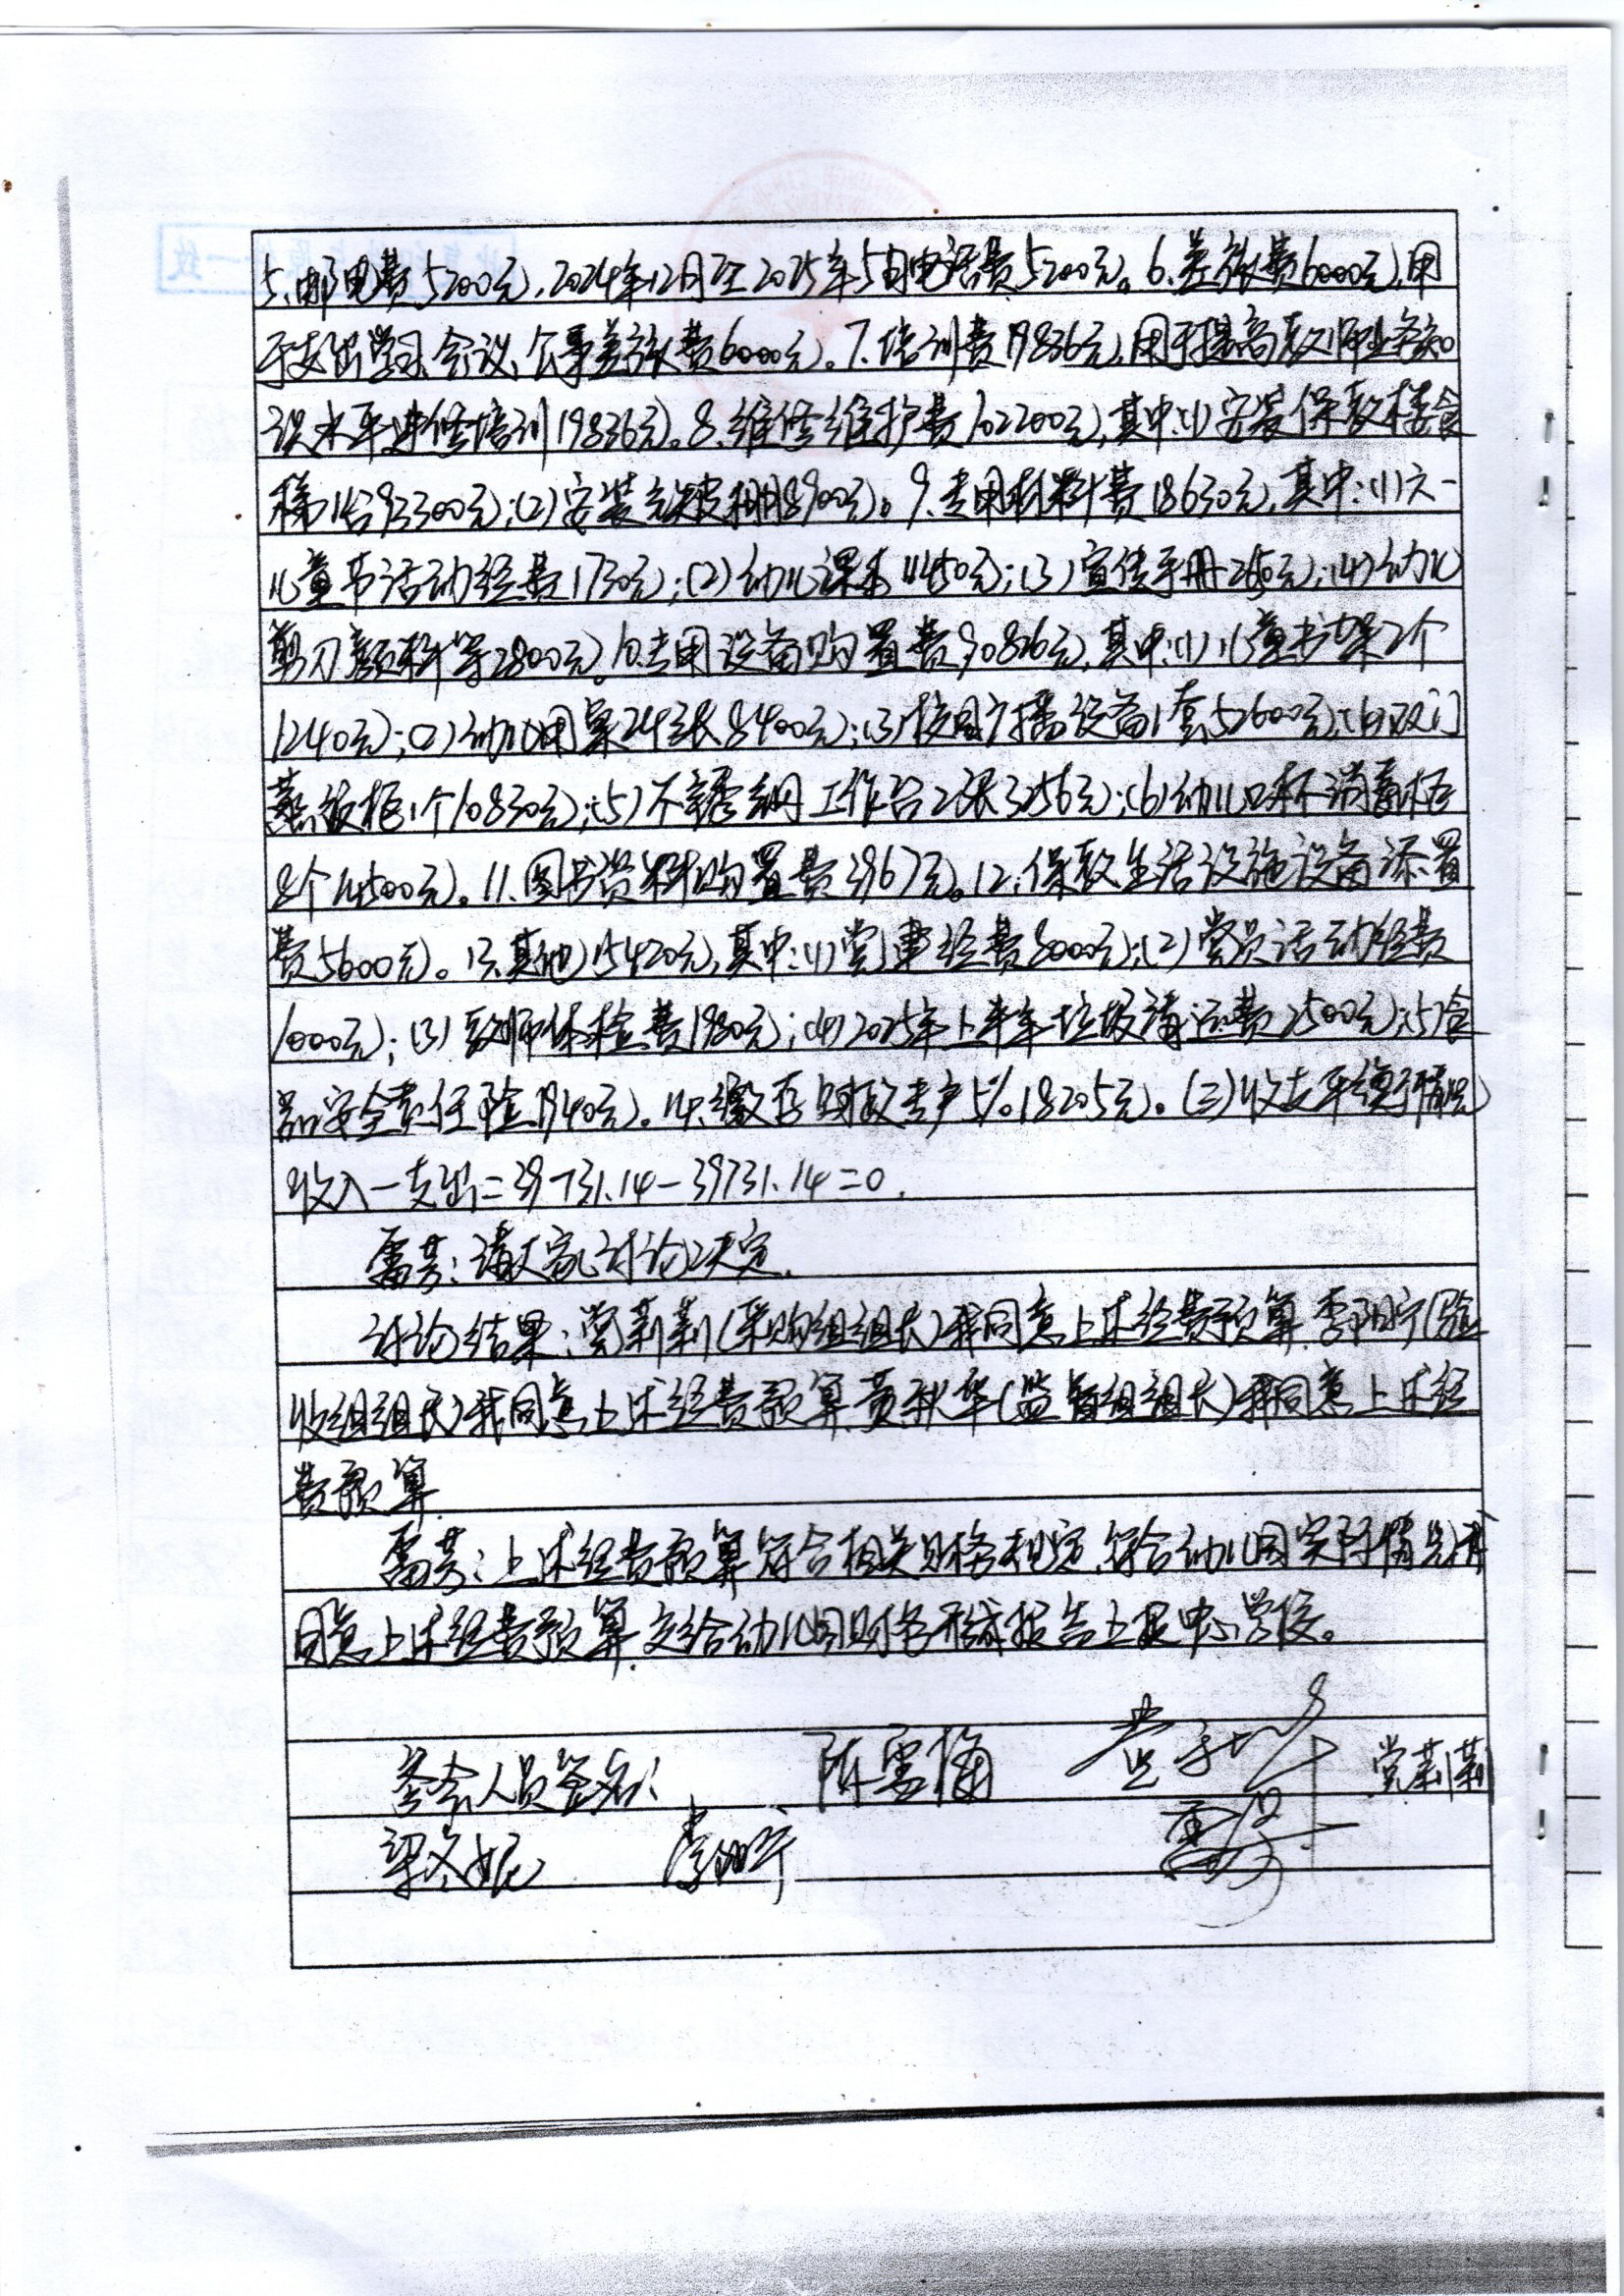 5.邮电费5200元,2024年12月至2025年5月电话费5200元。6.差旅费6000元,用
于支出学习、会议、公事差旅费6000元。7.培训费19836元,用于提高教师业务知
识水平进修培训19836元。8.维修维护费102200元,其中:(1)安装保教楼食
梯1台93300元;(2)安装铁皮棚8900元。9.专用材料费18630元,其中:(1)六一
儿童节活动经费1730元;(2)幼儿课本11450元;(3)宣传手册2650元;(4)幼儿
剪刀颜料等2800元。10.专用设备购置费90826元,其中:(1)儿童书架2个
1240元;(2)幼儿用桌24张8400元;(3)校园广播设备1套52600元;(4)双门
蒸饭柜1个10830元;(5)不锈钢工作台2张3256元;(6)幼儿口杯消毒柜
8个14500元。11.图书资料购置费3967元。12.保教生活设施设备添置
费5600元。13.其他15420元,其中:(1)党建经费8000元;(2)党员活动经费
1000元;(3)教师体检费1980元;(4)2025年上半年垃圾清运费2500元;(5)食
品安全责任险1940元。14.缴存财政专户5%18205元。(三)收支平缓情况
收入-支出=39731.14-39731.14=0.
雷芳:请大家讨论决定.
讨论结果:党莉莉(采购组组长)我同意上述经费预算.李阳宁(验
收组组长)我同意上述经费预算.黄秋华(监督组组长)我同意上述经
费预算.
雷芳:上述经费预算符合相关财务规定,符合幼儿园实际情况,我
同意上述经费预算.交给幼儿园财务形成报告上报中心学校。
参会人员签名: 陈雪梅 党莉莉
梁冬妮